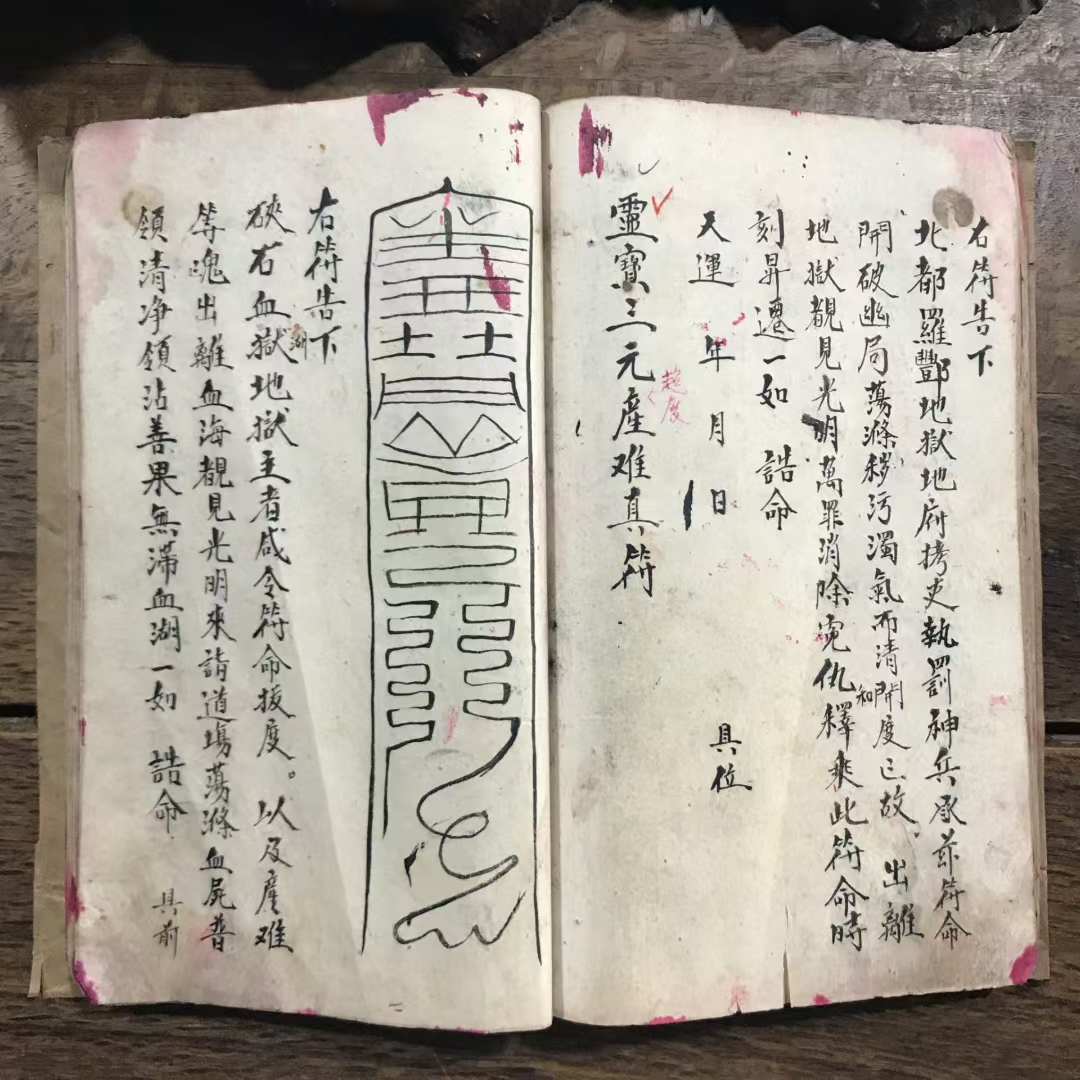 右符告下
北都羅酆地獄地府拷吏執罰神兵承兹符命
開破幽局蕩滌穢污濁氣而清開度亡故 出離
和
地獄覩見光明萬罪消除寃仇釋乘此符命時
刻昇遷一如 誥命
天運 年 月 日 具位
超度
靈寶三元產难真符
右符告下
硤石血獄地獄主者咸令符命拔度。以及產难
湖
等魂出離血海覩見光明來詣道場蕩滌血屍普
領清净領沾善果無滯血湖一如 誥命 具前